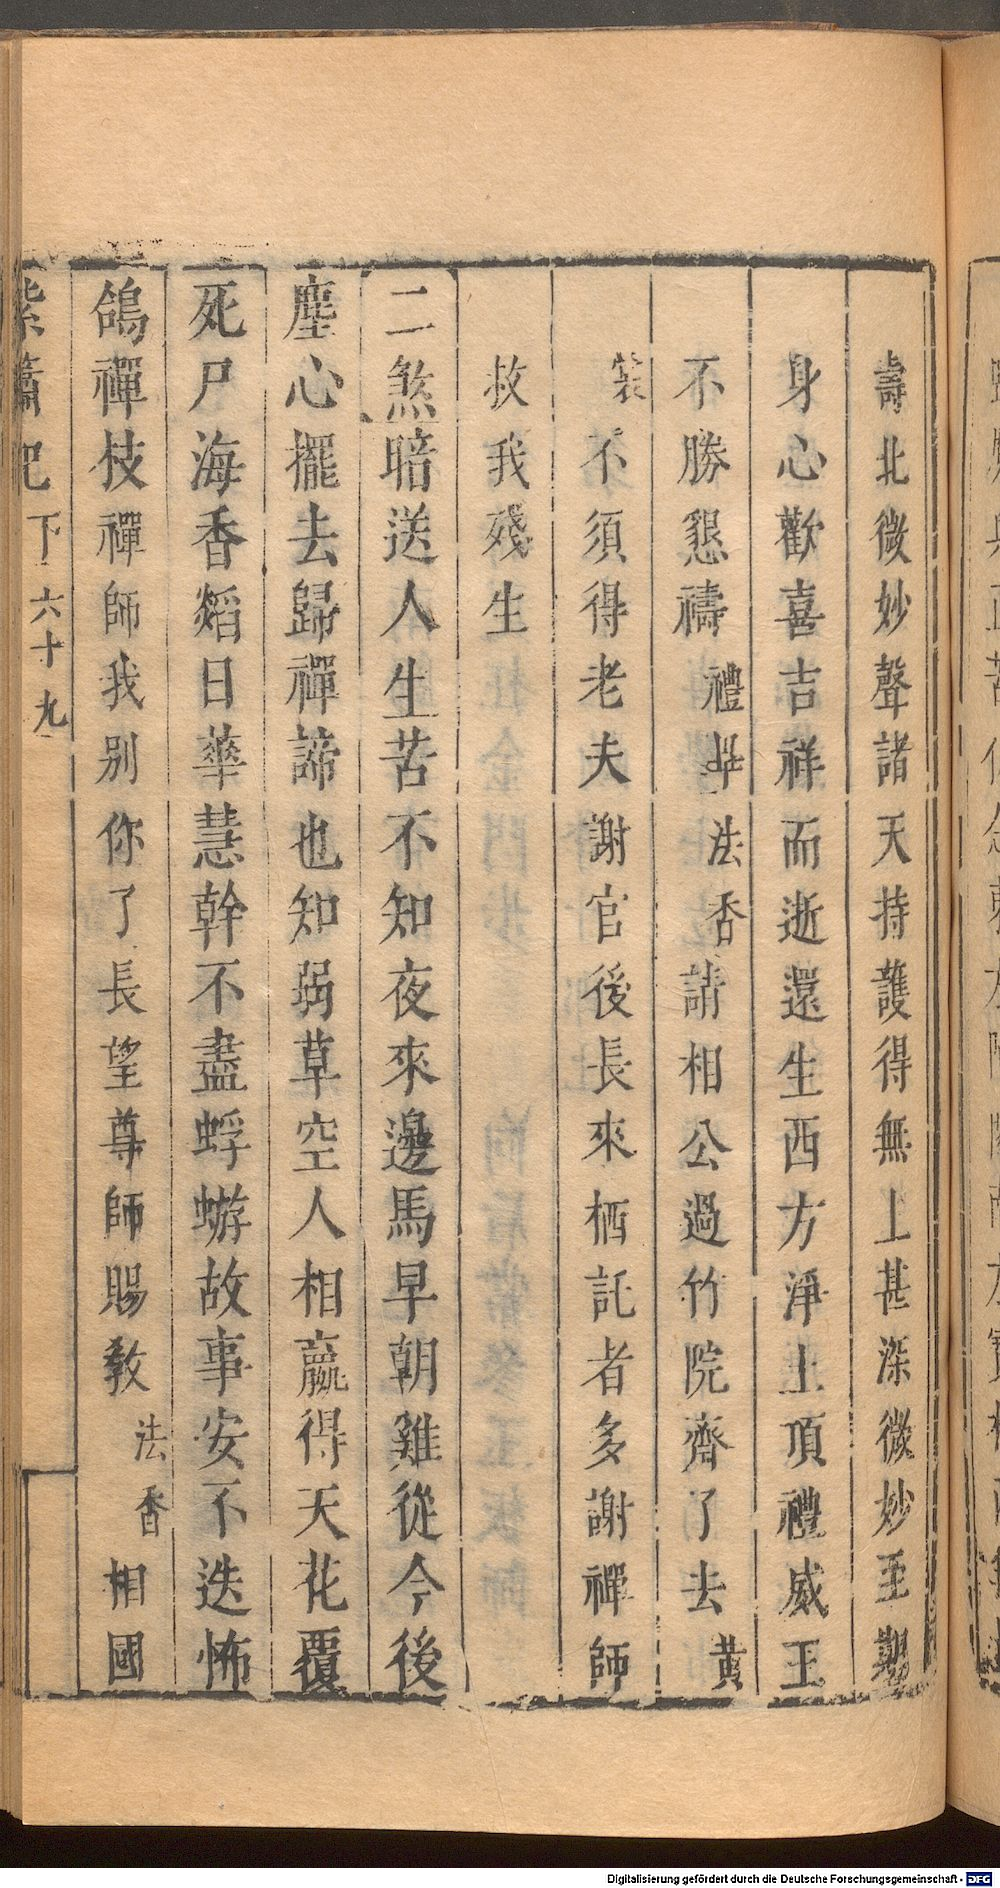 壽北微妙聲諸天持護得無上甚深微妙至
身心歡喜吉祥而逝還生西方淨土頂禮威王
不勝懇禱禮畢法香請相公過竹院齋了去黃
裳不須得老夫謝官後長來栖託者多謝禪師
救我殘生
二煞暗送人生苦不知夜來邊馬早朝雞從今後
塵心擺去歸禪諦也知弱草空人相贏得天花覆
死尸海香熖日華慧幹不盡蜉蝣故事安不迭怖
鴿禪枝禪師我别你了長望尊師賜教法香相國
紫簫記下六十九
Digitalisierung gefördert durch die Deutsche Forschungsgemeinschaft - DFG